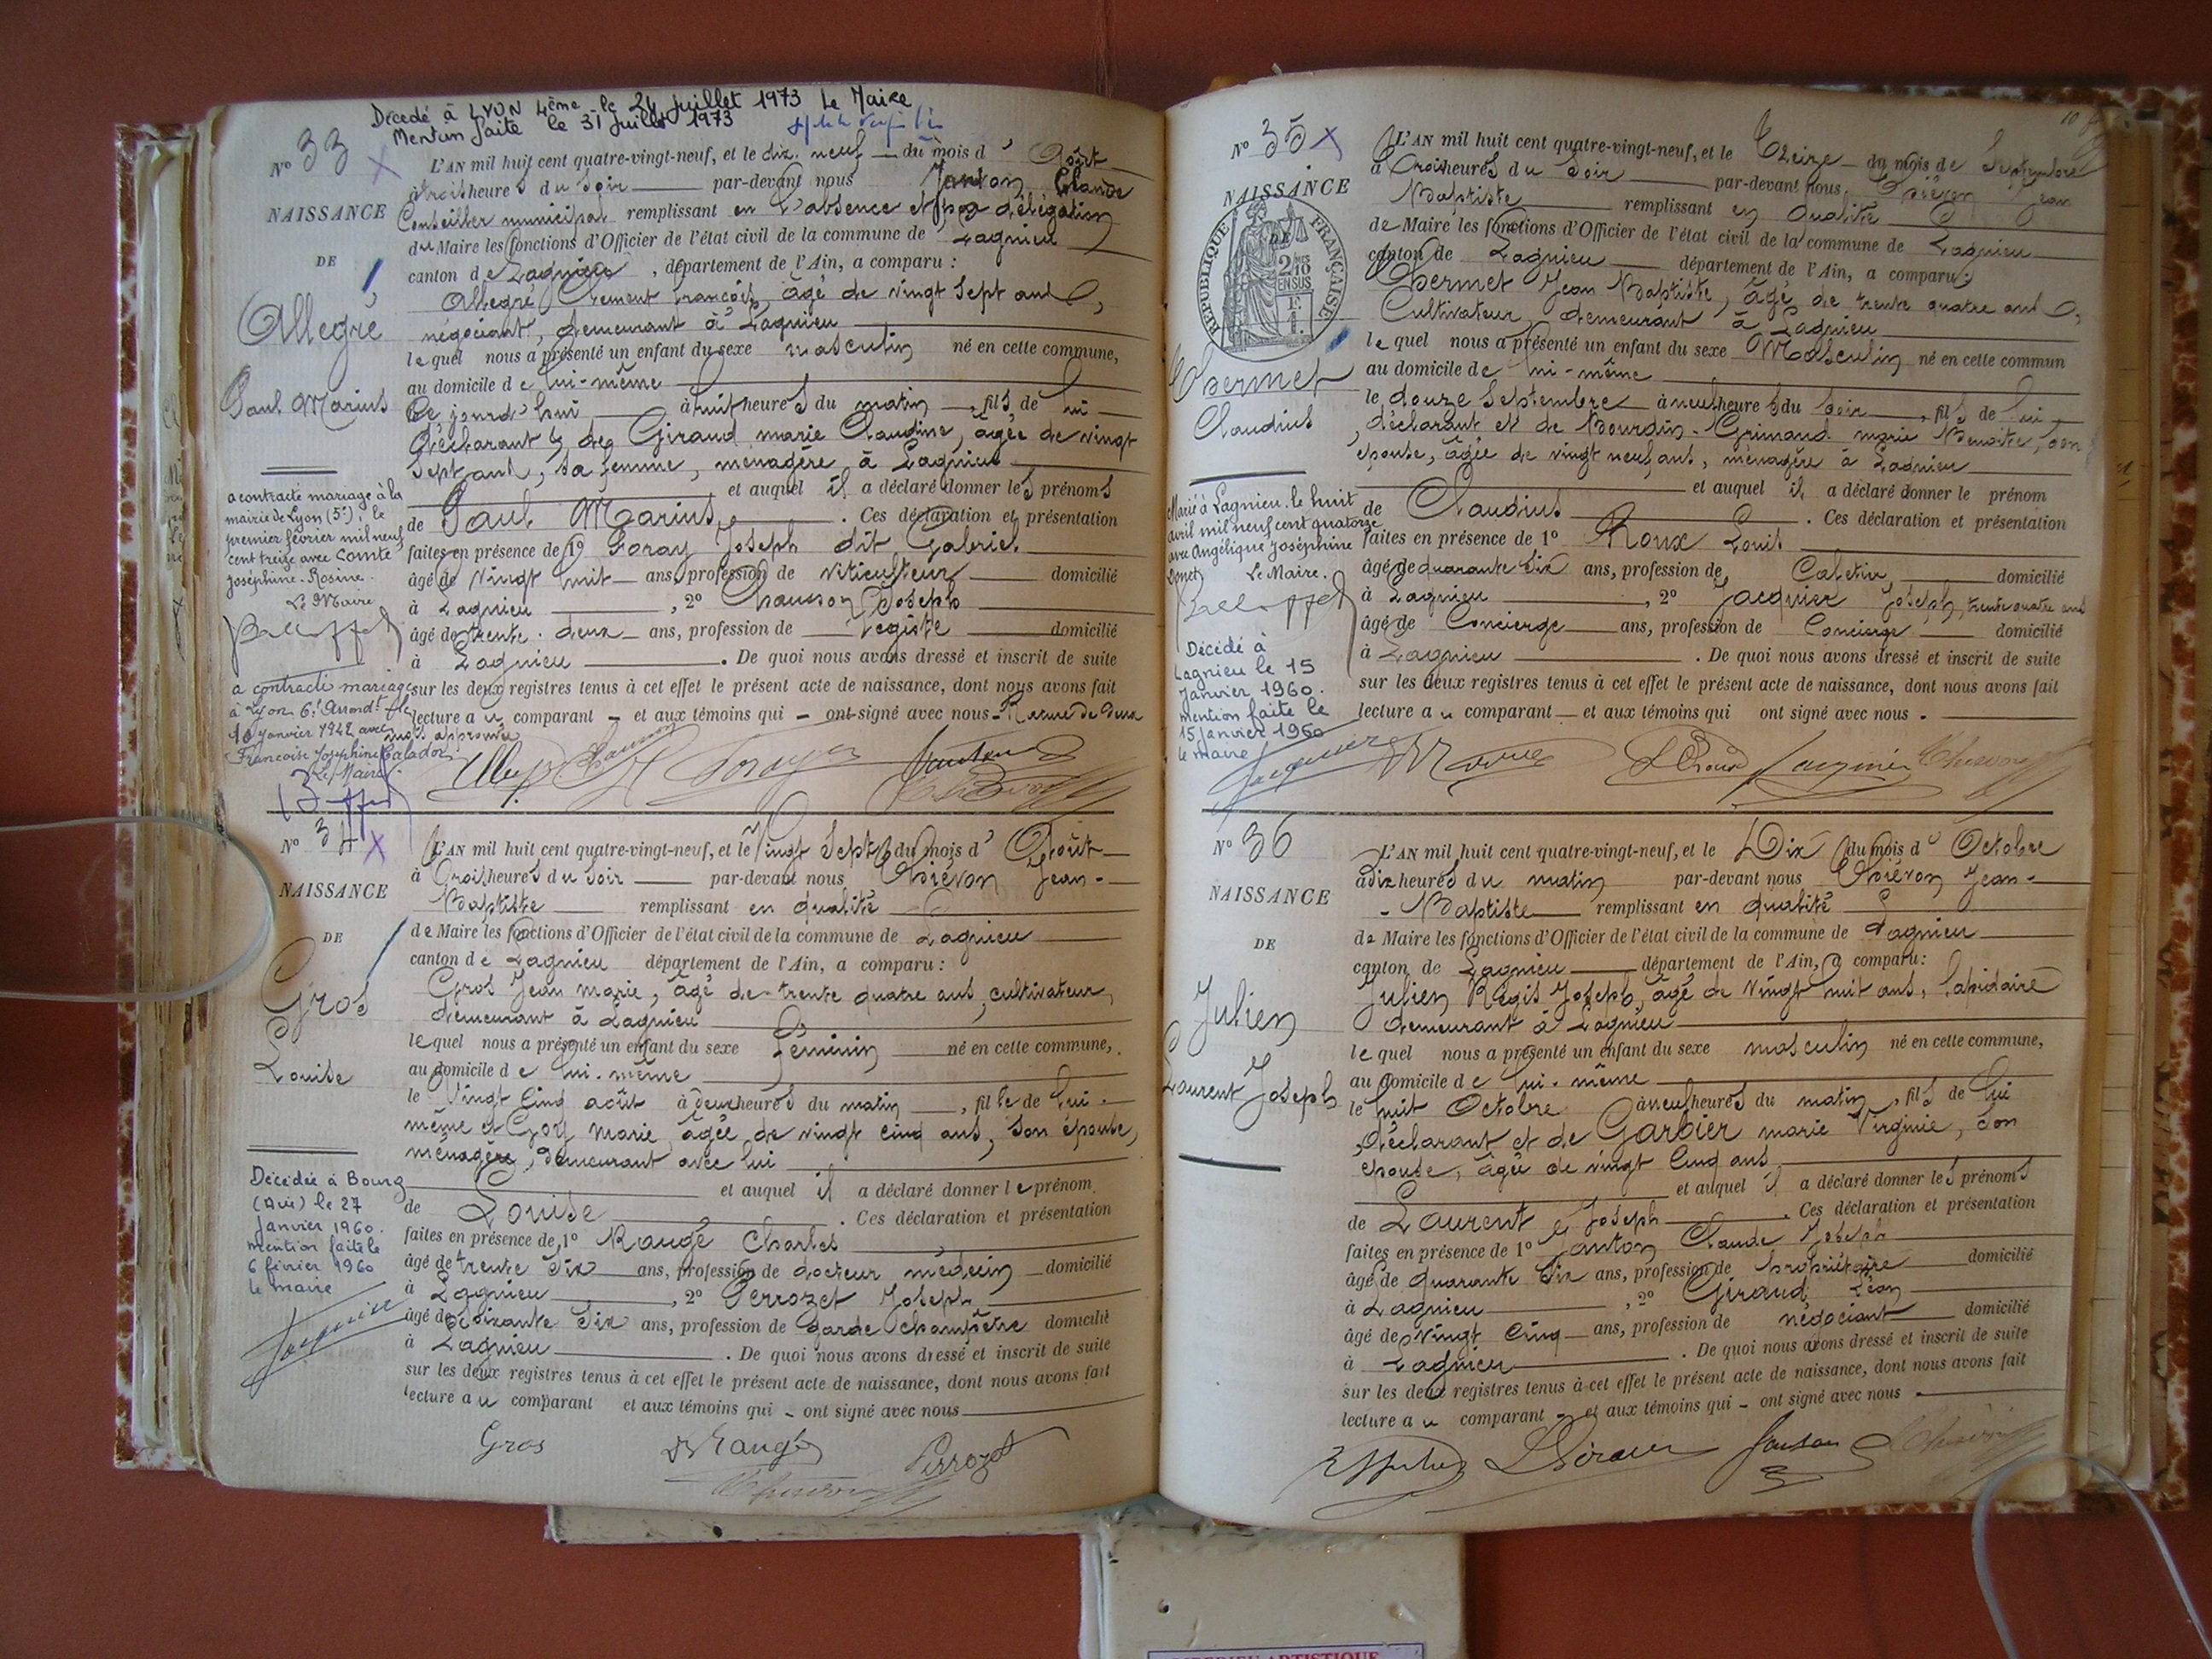 Decedé à LYON 4ème le 24 juillet 1973 Le Maire
Mention faite le 31 juillet 1973
N° 33
NAISSANCE
DE
Allegré
Paul Marius
a contracté mariage à la
mairie de Lyon (5e), le
premier février mil neuf
cent treize avec Comte
Joséphine-Rosine.
Le Maire
a contracté mariage
à Lyon 6e Arrondt le
10 janvier 1942 avec
Françoise Joséphine
Le Maire
L'AN mil huit cent quatre-vingt-neuf, et le dix-neuf du mois d'Août
à trois heures du soir par-devant nous Janton Claude
Conseiller municipal remplissant en l'absence et par délégation
du Maire les fonctions d'Officier de l'état civil de la commune de Lagnieu
canton de Lagnieu, département de l'Ain, a comparu :
Allegré Clement François, âgé de vingt sept ans,
négociant, demeurant à Lagnieu
lequel nous a présenté un enfant du sexe masculin né en cette commune,
au domicile de lui-même
Ce jourd'hui à huit heures du matin, fils de lui
déclarant et de Giraud marie Claudine, âgée de vingt
sept ans, sa femme, menagère à Lagnieu
et auquel il a déclaré donner les prénoms
de Paul Marius. Ces déclaration et présentation
faites en présence de 1° Foray Joseph dit Gabriel
âgé de vingt huit ans, profession de viticulteur domicilié
à Lagnieu, 2° Chausson Joseph
âgé de trente-deux ans, profession de Légiste domicilié
à Lagnieu. De quoi nous avons dressé et inscrit de suite
sur les deux registres tenus à cet effet le présent acte de naissance, dont nous avons fait
lecture au comparant - et aux témoins qui - ont signé avec nous - Rature de deux
mots approuvée
N° 34
NAISSANCE
DE
Gros
Louise
Décédée à Bourg
(Ain) le 27
Janvier 1960.
mention faite le
6 février 1960
le maire
L'AN mil huit cent quatre-vingt-neuf, et le Vingt Sept du mois d'Août
à Trois heures du soir par-devant nous Chrévon Jean-
Baptiste remplissant en qualité
de Maire les fonctions d'Officier de l'état civil de la commune de Lagnieu
canton de Lagnieu département de l'Ain, a comparu :
Gros Jean marie, âgé de trente quatre ans, cultivateur,
demeurant à Lagnieu
lequel nous a présenté un enfant du sexe Féminin né en cette commune,
au domicile de lui-même
le Vingt Cinq août à deux heures du matin, fille de lui-
même et Goy Marie, âgée de vingt cinq ans, son épouse,
ménagère, demeurant avec lui
et auquel il a déclaré donner le prénom
de Louise. Ces déclaration et présentation
faites en présence de 1° Raugé Charles
âgé de trente six ans, profession de docteur médecin domicilié
à Lagnieu, 2° Perrozet Joseph
âgé de soixante six ans, profession de garde champêtre domicilié
à Lagnieu. De quoi nous avons dressé et inscrit de suite
sur les deux registres tenus à cet effet le présent acte de naissance, dont nous avons fait
lecture au comparant et aux témoins qui - ont signé avec nous
Gros Raugé Perrozet
N° 35
NAISSANCE
DE
RÉPUBLIQUE FRANÇAISE
Chermet
Claudius
Marié à Lagnieu le huit
avril mil neuf cent quatorze
avec Angélique Joséphine
Le Maire.
Décédé à
Lagnieu le 15
Janvier 1960.
mention faite le
15 janvier 1960
le maire
L'AN mil huit cent quatre-vingt-neuf, et le Treize du mois de Septembre
à Trois heures du soir par-devant nous Chrévon Jean
Baptiste remplissant en qualité
de Maire les fonctions d'Officier de l'état civil de la commune de Lagnieu
canton de Lagnieu département de l'Ain, a comparu :
Chermet Jean Baptiste, âgé de trente quatre ans,
Cultivateur, demeurant à Lagnieu
lequel nous a présenté un enfant du sexe Masculin né en cette commun
au domicile de lui-même
le douze Septembre à neuf heures du soir, fils de lui
déclarant et de Bourdin-Grimaud marie Benoite, son
épouse, âgée de vingt neuf ans, ménagère à Lagnieu
et auquel il a déclaré donner le prénom
de Claudius. Ces déclaration et présentation
faites en présence de 1° Roux Louis
âgé de quarante six ans, profession de domicilié
à Lagnieu, 2° Jacquier Joseph, trente quatre ans
âgé de Concierge ans, profession de Concierge domicilié
à Lagnieu. De quoi nous avons dressé et inscrit de suite
sur les deux registres tenus à cet effet le présent acte de naissance, dont nous avons fait
lecture au comparant et aux témoins qui ont signé avec nous.
N° 36
NAISSANCE
DE
Julien
Laurent Joseph
L'AN mil huit cent quatre-vingt-neuf, et le Dix du mois d'Octobre
à dix heures du matin par-devant nous Chrévon Jean-
-Baptiste remplissant en qualité
de Maire les fonctions d'Officier de l'état civil de la commune de Lagnieu
canton de Lagnieu département de l'Ain, a comparu :
Julien Régis Joseph, âgé de vingt huit ans, lapidaire
demeurant à Lagnieu
lequel nous a présenté un enfant du sexe masculin né en cette commune,
au domicile de lui-même
le huit Octobre à neuf heures du matin, fils de lui
déclarant et de Garbier marie Virginie, son
épouse, âgée de vingt cinq ans,
et auquel il a déclaré donner les prénoms
de Laurent Joseph. Ces déclaration et présentation
faites en présence de 1° Janton Claude Joseph
âgé de quarante six ans, profession de propriétaire domicilié
à Lagnieu, 2° Giraud Léon
âgé de vingt cinq ans, profession de négociant domicilié
à Lagnieu. De quoi nous avons dressé et inscrit de suite
sur les deux registres tenus à cet effet le présent acte de naissance, dont nous avons fait
lecture au comparant - et aux témoins qui - ont signé avec nous